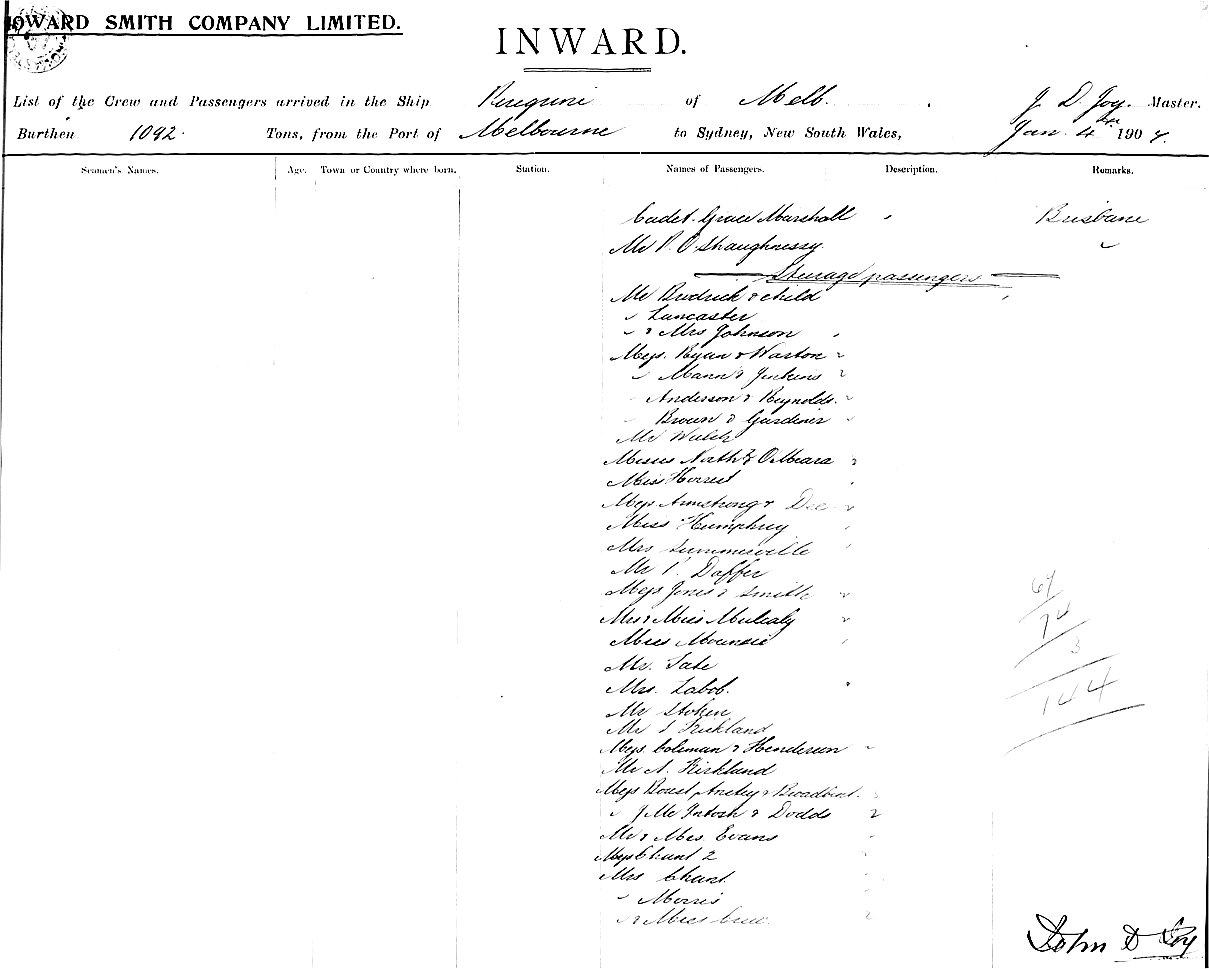 HOWARD SMITH COMPANY LIMITED.
INWARD.
List of the Crew and Passengers arrived in the Ship Peregrine of Melb. J. D. Joy. Master.
Burthen 1092 Tons, from the Port of Melbourne to Sydney, New South Wales, Jan. 4th 1904.
Seamen's Names. Age. Town or Country where born. Station. Names of Passengers. Description. Remarks.
Cadet Grace Marshall Brisbane
Mr P. O'Shaughnessy
Steerage passengers
Mr Brodrick & child
" Lancaster
" & Mrs Johnson
Mess. Ryan & Waston 2
" Mann & Jenkins 2
Anderson & Reynolds
Brown & Gardiner
Mr Welch
Misses North & O'Meara 2
Miss
Mess Armstrong & Dee
Miss Humphrey
Mrs Summerville
Mr P. Daffer
Mess Jones & Smith
Mrs & Miss
Miss Mounsie
Mr. Tate
Mrs. Labob.
Mr Stoken
Mr J Kirkland
Mess Coleman & Henderson
Mr A. Kirkland
Mess & Broadbent.
" J McIntosh & Dodds 2
Mr & Mrs Evans
Mess Chant 2
Mrs Chant
" Morris
" & Miss
67
74
3
144
John D Joy